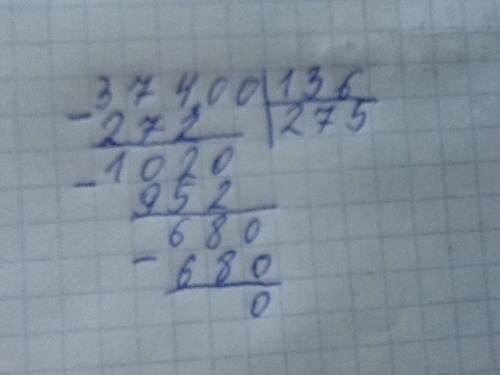 37400 136
- 272 275
- 1020
952
680
- 680
0